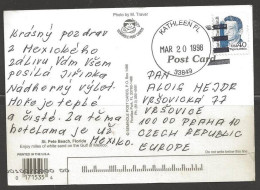 Photo by M. Travel
Krásný pozdrav
z Mexického
zálivu Vám všem
posílá Jiřinka
Nádherný výlet
Moře je teplé
a čisté. Za těma
hotelama je už
Mexiko.
KATHLEEN FL
MAR 20 1998
33849
Post Card
40
PAN
ALOIS HEJDR
VRŠOVICKÁ 77
VRŠOVICE
100 00 PRAHA 10
CZECH REPUBLIC
EUROPE
PRINTED IN THE USA
St. Pete Beach, Florida
Enjoy miles of white sand on the Gulf of Mexico.